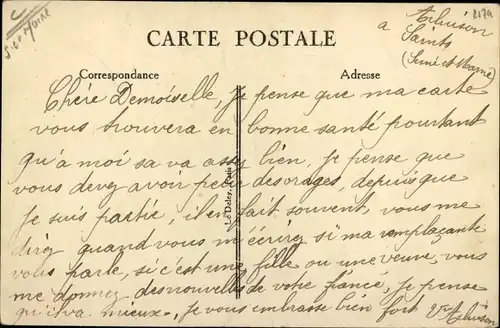 S. et Marne
2179
à Saints
(Seine et Marne)
CARTE POSTALE
Correspondance
Adresse
Chère Demoiselle, je pense que ma carte
vous trouvera en bonne santé pourtant
qu'à moi sa va assy bien, je pense que
vous devez avoir peur des orages, depuis que
je suis partie, il en fait souvent, vous me
direz quand vous m'écrirez si ma remplaçante
vous parle, si c'est une fille ou une veuve, vous
me donnez des nouvelles de votre fiancé, je pense
qu'il va mieux, je vous embrasse bien fort
L. Deley, Paris